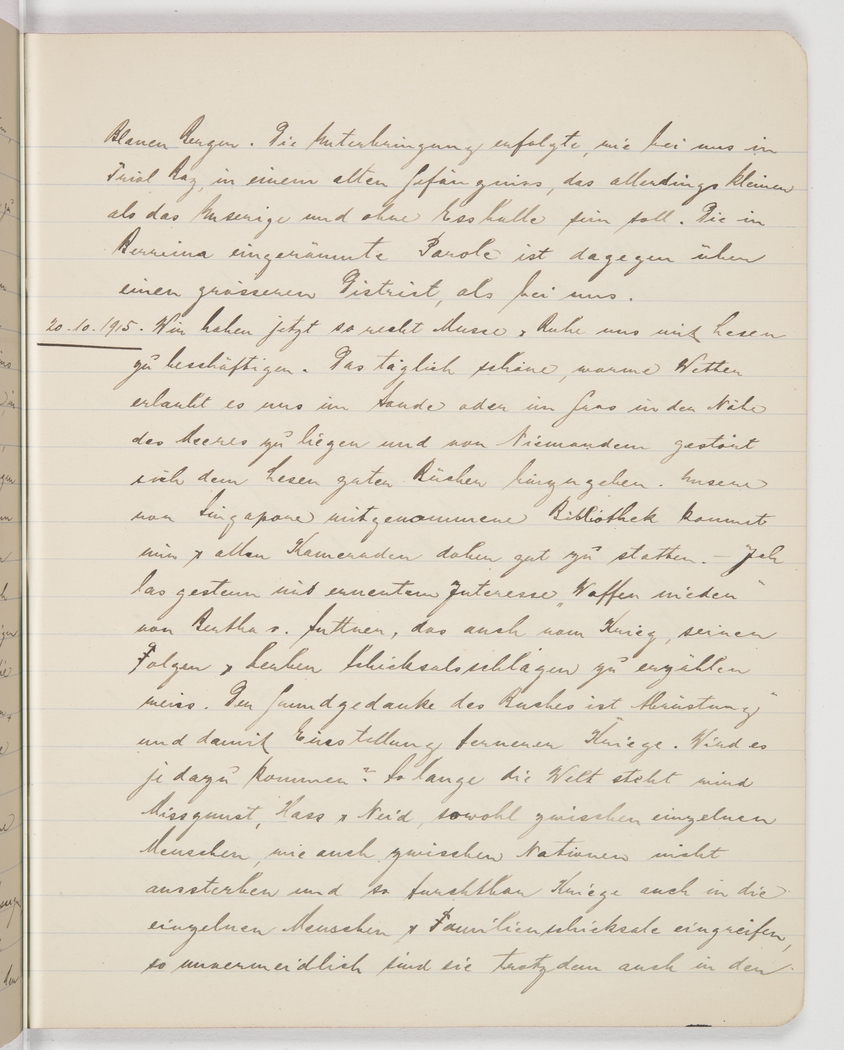 Blauen Bergen. Die Unterbringung erfolgte, wie bei uns in
Trial Bay, in einem alten Gefängniss, das allerdings kleiner
als das Unserige und ohne Esshalle sein soll. Die in
Berrima eingeräumte Parole ist dagegen über
einen grösseren District, als bei uns.
20.10.1915. Wir haben jetzt so recht Musse & Ruhe uns mit Lesen
zu beschäftigen. Das täglich schöne, warme Wetter
erlaubt es uns im Sande oder im Gras in der Nähe
des Meeres zu liegen und von Niemandem gestört
sich dem Lesen guter Bücher hinzugeben. Unsere
von Singapore mitgenommene Bibliothek kommt
mir & allen Kameraden daher gut zu statten. – Ich
las gestern mit erneutem Interesse „Waffen nieder"
von Bertha v. Suttner, das auch vom Krieg, seinen
Folgen & herben Schicksalsschlägen zu erzählen
weiss. Der Grundgedanke des Buches ist „Abrüstung"
und damit Einstellung fernerer Kriege. Wird es
je dazu kommen? So lange die Welt steht wird
Missgunst, Hass & Neid, sowohl zwischen einzelnen
Menschen, wie auch zwischen Nationen nicht
aussterben und so furchtbar Kriege auch in die
einzelnen Menschen & Familienschicksale eingreifen,
so unvermeidlich sind sie trotzdem auch in den